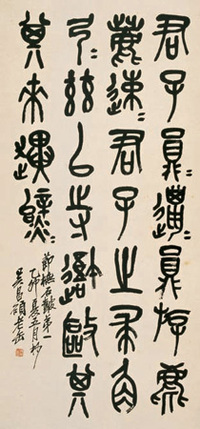 君子員邋員斿鹿
鹿速君子之求角
弓茲以寺避敺其
其來趩
節橅石鼓第一
乙卯夏五月杪
吳昌碩老缶